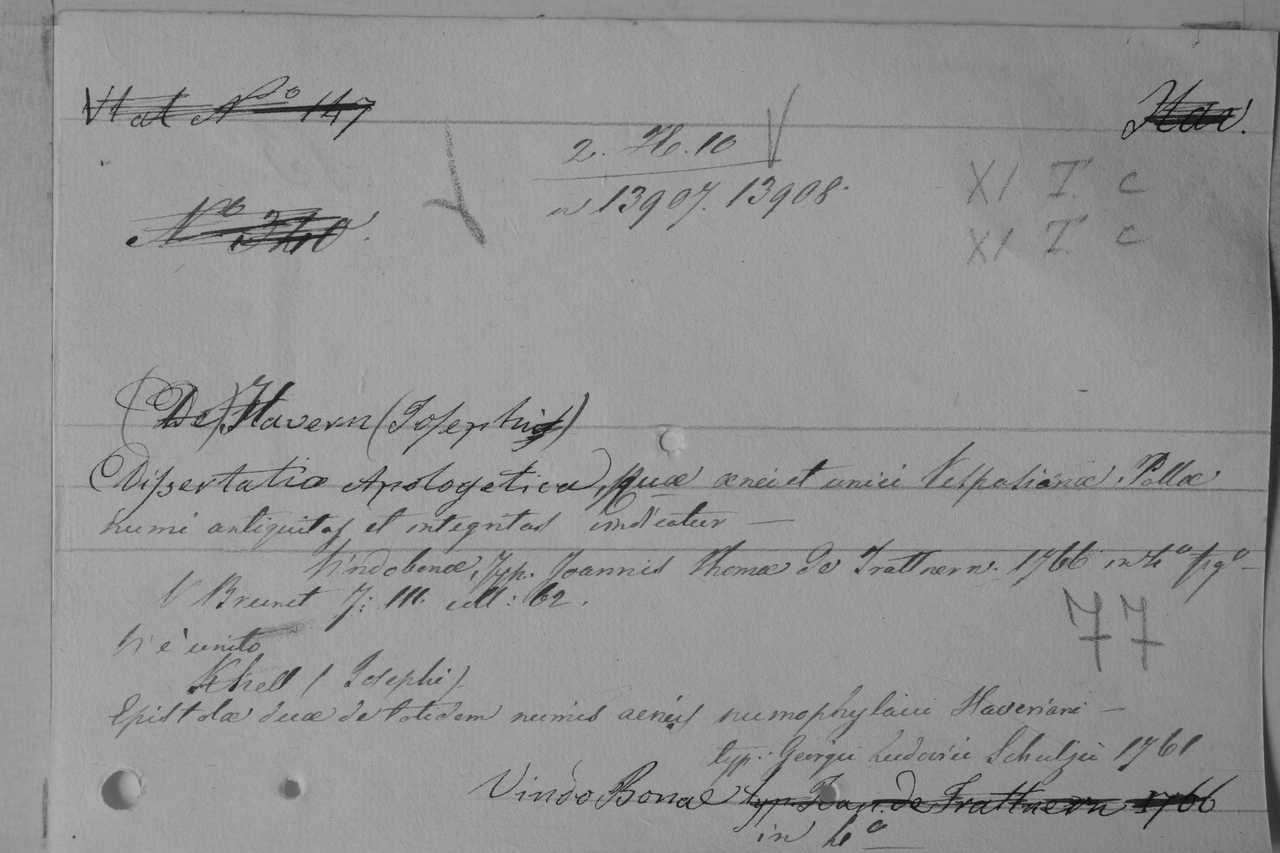 Stat Nº 147
Hav.
2. H. 10 V
XI T. C
a 13907. 13908.
XI T. C
Nº 340.
(De) Havern (Josephus)
Dissertatio Apologetica, qua ænei et unici Vespasianæ Pollæ
numi antiquitas et integritas vindicatur —
Vindobonæ, Typ. Joannis Thomæ de Trattnern. 1766 in 4º fig º —
V Brunet T: III. coll: 62.
77
V'è unito
Khell (Josephi)
Epistolæ duæ de totidem numis aeneis numophylacii Haveriani —
typ. Georgii Ludovici Schulzii 1761
VindoBonae typ. Joan. de Trattnern 1766
in 4º